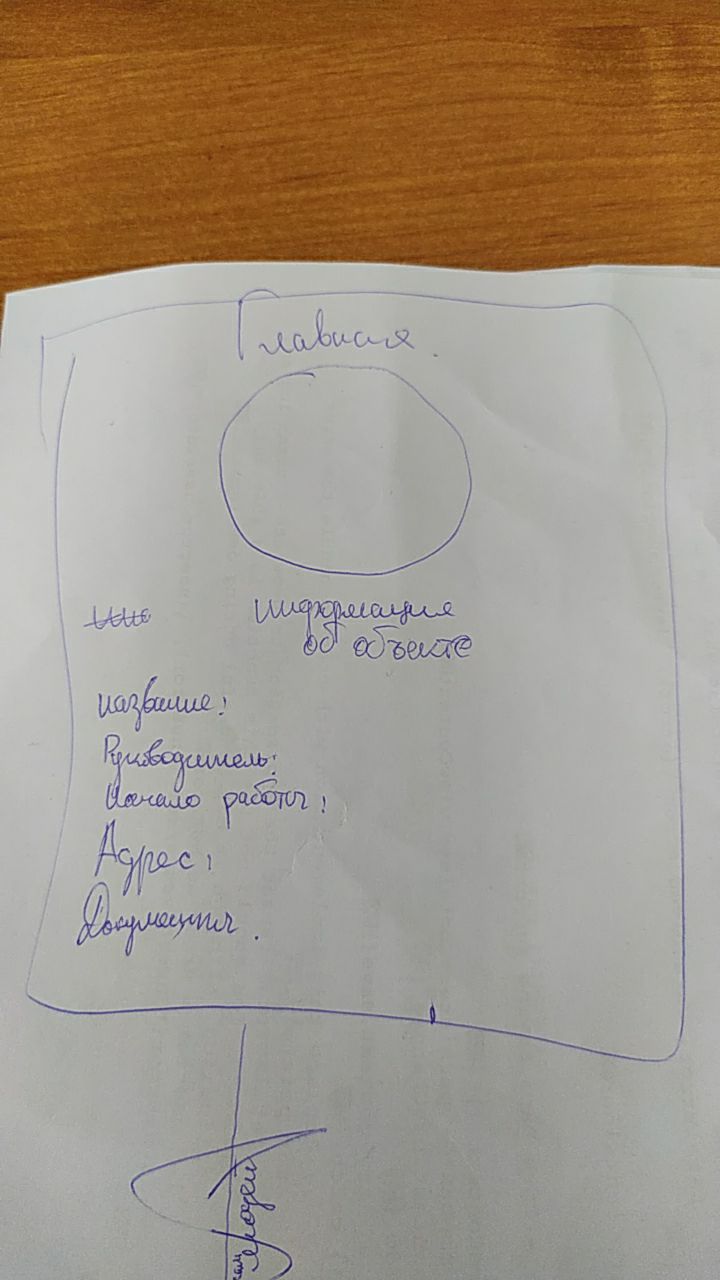 Главная
информация
об объекте
название:
Руководитель:
Начало работы:
Адрес:
Документация.